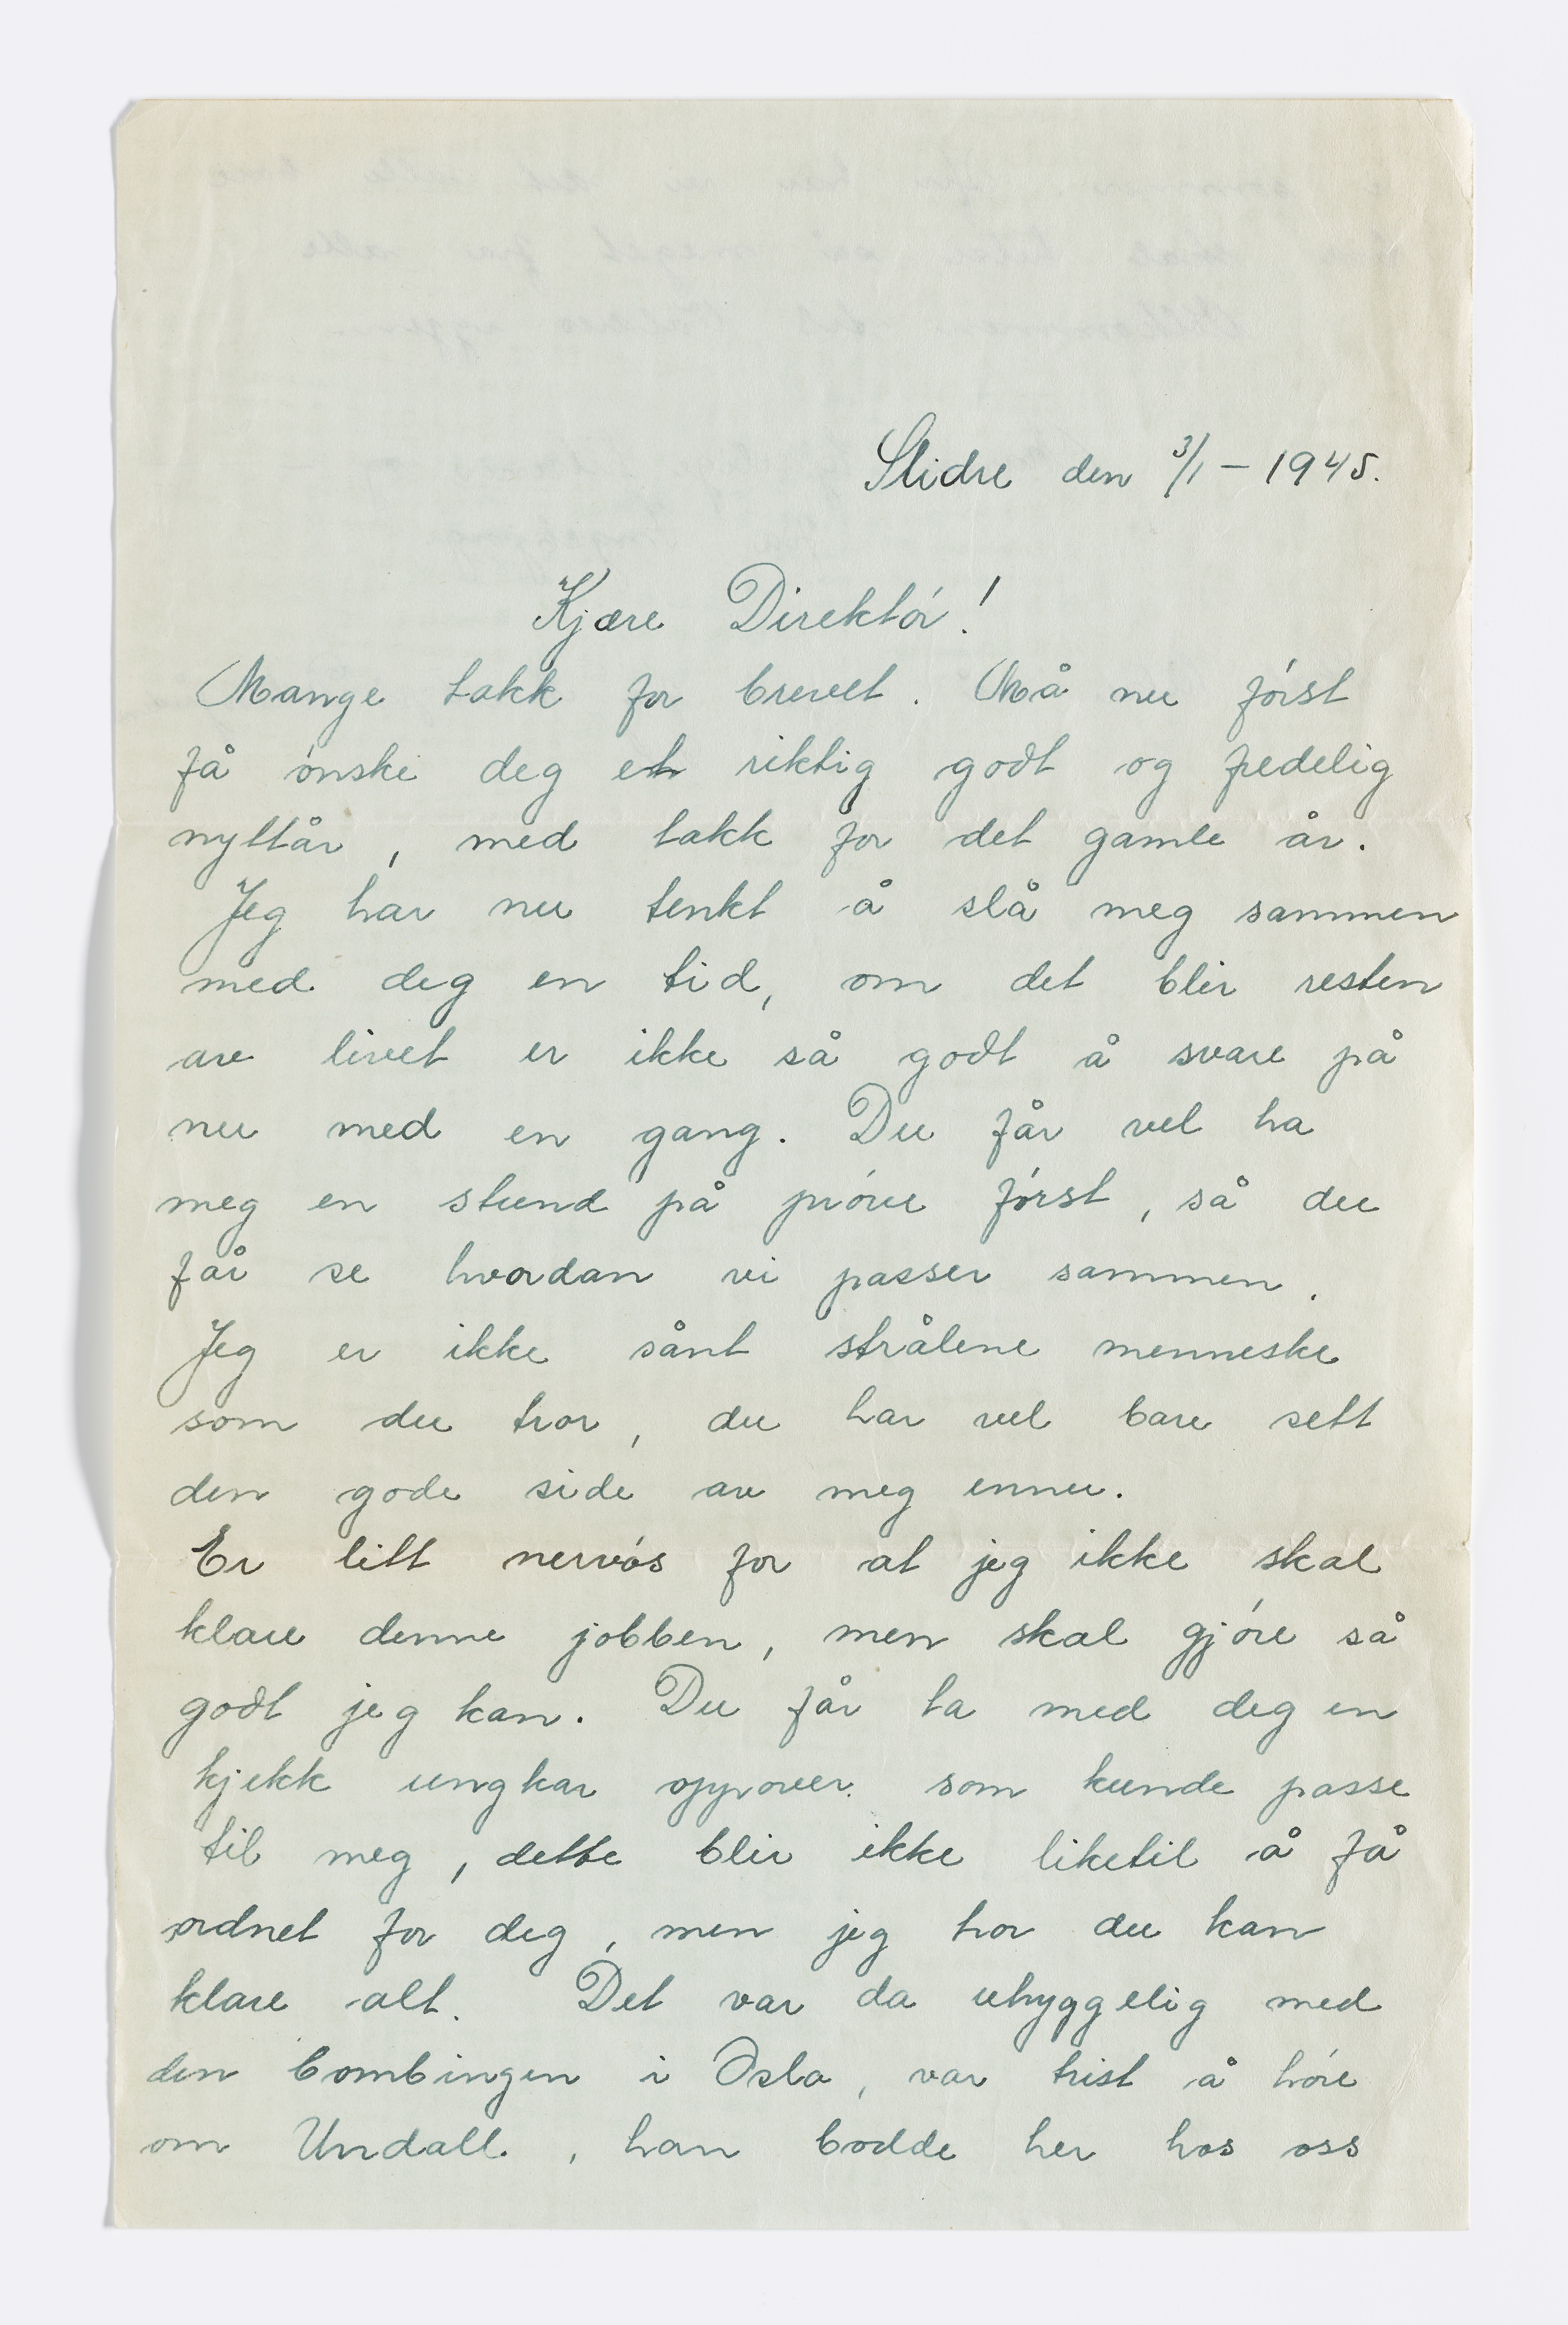 Slidre den 3/1 – 1945.
Kjære Direktór!
Mange takk for brevet. Må nu fórst
få ónske deg et riktig godt og fredelig
nyttår, med takk for det gamle år.
Jeg har nu tenkt å slå meg sammen
med deg en tid, om det blir resten
av livet er ikke så godt å svare på
nu med en gang. Du får vel ha
meg en stund på próve fórst, så du
får se hvordan vi passer sammen.
Jeg er ikke sånt strålene menneske
som du tror, du har vel bare sett
den gode side av meg ennu.
Er litt nervós for at jeg ikke skal
klare denne jobben, men skal gjóre så
godt jeg kan. Du får ta med deg en
kjekk ungkar oppover som kunde passe
til meg, dette blir ikke liketil å få
ordnet for deg, men jeg tror du kan
klare alt. Det var da uhyggelig med
den bombingen i Oslo, var trist å hóre
om Undall, han bodde her hos oss